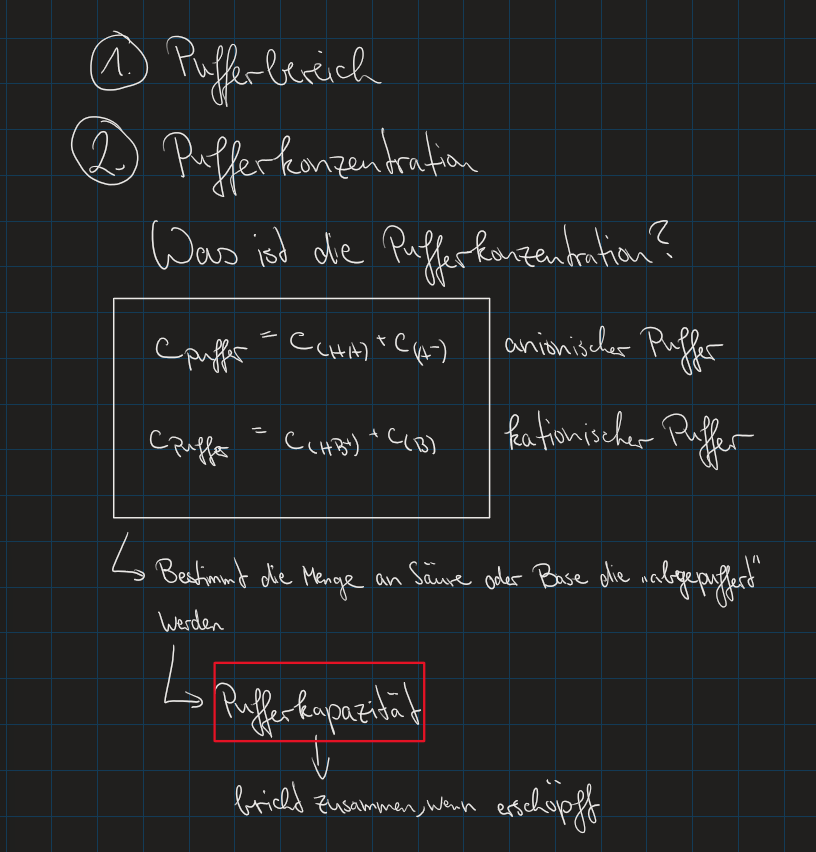 1. Pufferbereich
2. Pufferkonzentration
Was ist die Pufferkonzentration?
C Puffer = C(HA) + C(A⁻) anionischer Puffer
C Puffer = C(HB⁺) + C(B) kationischer Puffer
↳ Bestimmt die Menge an Säure oder Base die „abgepuffert"
werden
↳ Pufferkapazität
↓
bricht zusammen, wenn erschöpft